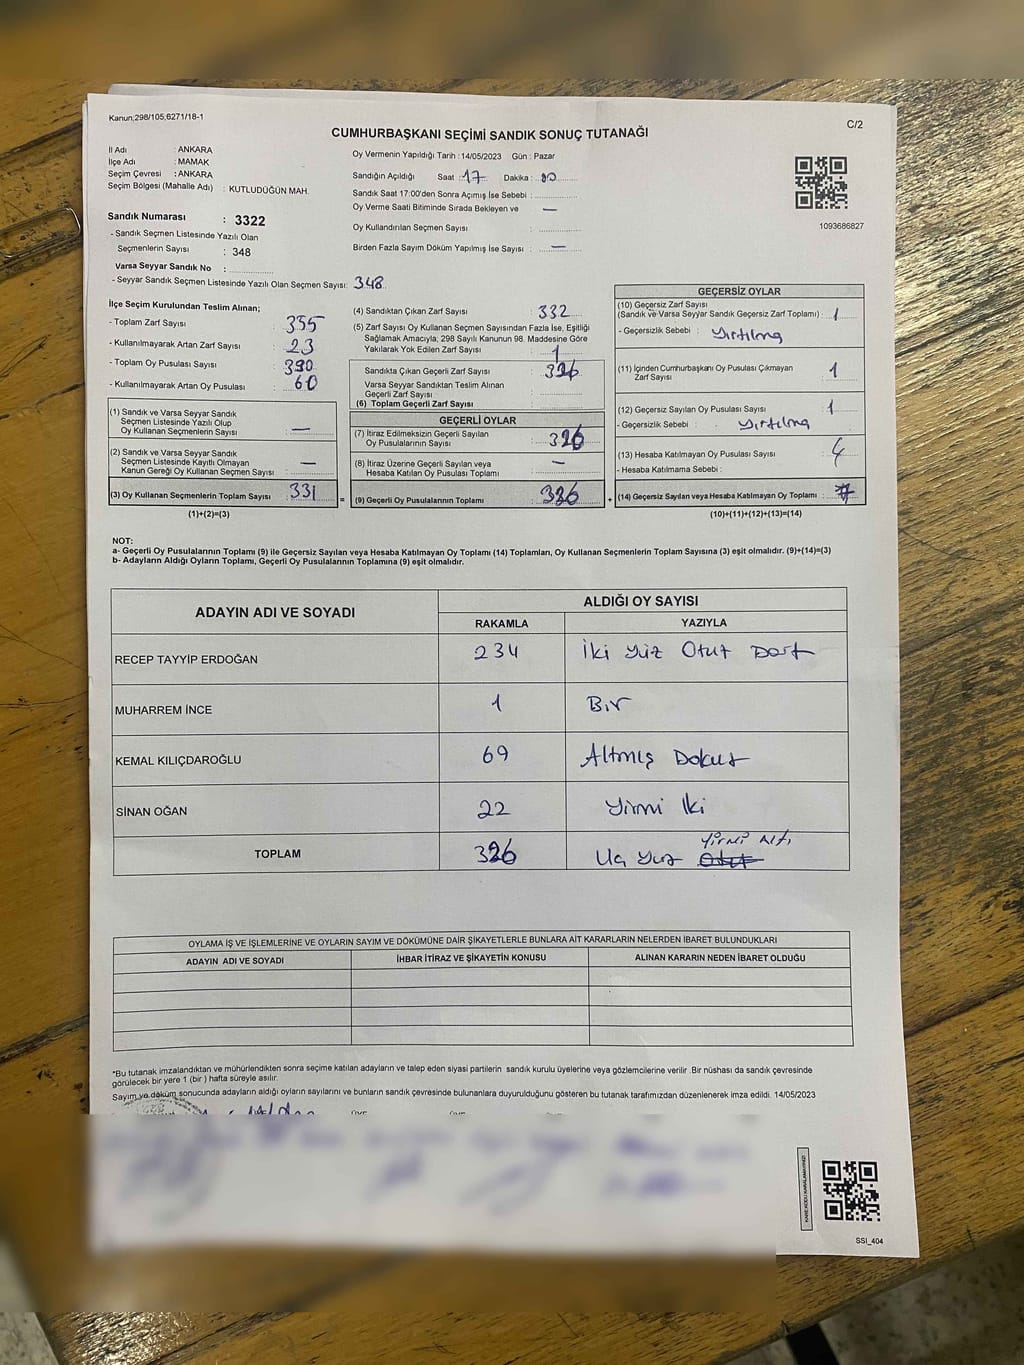 Kanun;298/105;6271/18-1
C/2
CUMHURBAŞKANI SEÇİMİ SANDIK SONUÇ TUTANAĞI
İl Adı : ANKARA
İlçe Adı : MAMAK
Seçim Çevresi : ANKARA
Seçim Bölgesi (Mahalle Adı) : KUTLUDÜĞÜN MAH.
Sandık Numarası : 3322
- Sandık Seçmen Listesinde Yazılı Olan
Seçmenlerin Sayısı : 348
Varsa Seyyar Sandık No :
- Seyyar Sandık Seçmen Listesinde Yazılı Olan Seçmen Sayısı: 348
Oy Vermenin Yapıldığı Tarih : 14/05/2023 Gün : Pazar
Sandığın Açıldığı Saat : 17 Dakika : 00
Sandık Saat 17:00'den Sonra Açımış İse Sebebi :
Oy Verme Saati Bitiminde Sırada Bekleyen ve —
Oy Kullandırılan Seçmen Sayısı :
Birden Fazla Sayım Döküm Yapılmış İse Sayısı : —
1093686827
İlçe Seçim Kurulundan Teslim Alınan;
- Toplam Zarf Sayısı : 355
- Kullanılmayarak Artan Zarf Sayısı : 23
- Toplam Oy Pusulası Sayısı : 390
- Kullanılmayarak Artan Oy Pusulası : 60
(1) Sandık ve Varsa Seyyar Sandık
Seçmen Listesinde Yazılı Olup
Oy Kullanan Seçmenlerin Sayısı : —
(2) Sandık ve Varsa Seyyar Sandık
Seçmen Listesinde Kayıtlı Olmayan
Kanun Gereği Oy Kullanan Seçmen Sayısı : —
(3) Oy Kullanan Seçmenlerin Toplam Sayısı : 331
(1)+(2)=(3)
(4) Sandıktan Çıkan Zarf Sayısı : 332
(5) Zarf Sayısı Oy Kullanan Seçmen Sayısından Fazla İse, Eşitliği
Sağlamak Amacıyla, 298 Sayılı Kanunun 98. Maddesine Göre
Yakılarak Yok Edilen Zarf Sayısı : 1
Sandıkta Çıkan Geçerli Zarf Sayısı : 326
Varsa Seyyar Sandıktan Teslim Alınan
Geçerli Zarf Sayısı :
(6) Toplam Geçerli Zarf Sayısı :
GEÇERLİ OYLAR
(7) İtiraz Edilmeksizin Geçerli Sayılan
Oy Pusulalarının Sayısı : 326
(8) İtiraz Üzerine Geçerli Sayılan veya
Hesaba Katılan Oy Pusulası Toplamı : —
= (9) Geçerli Oy Pusulalarının Toplamı : 326 +
GEÇERSİZ OYLAR
(10) Geçersiz Zarf Sayısı
(Sandık ve Varsa Seyyar Sandık Geçersiz Zarf Toplamı) : 1
- Geçersizlik Sebebi : Yırtılma
(11) İçinden Cumhurbaşkanı Oy Pusulası Çıkmayan
Zarf Sayısı : 1
(12) Geçersiz Sayılan Oy Pusulası Sayısı : 1
- Geçersizlik Sebebi : Yırtılma
(13) Hesaba Katılmayan Oy Pusulası Sayısı : 4
- Hesaba Katılmama Sebebi :
(14) Geçersiz Sayılan veya Hesaba Katılmayan Oy Toplamı :
(10)+(11)+(12)+(13)=(14)
NOT:
a- Geçerli Oy Pusulalarının Toplamı (9) ile Geçersiz Sayılan veya Hesaba Katılmayan Oy Toplamı (14) Toplamları, Oy Kullanan Seçmenlerin Toplam Sayısına (3) eşit olmalıdır. (9)+(14)=(3)
b- Adayların Aldığı Oyların Toplamı, Geçerli Oy Pusulalarının Toplamına (9) eşit olmalıdır.
ADAYIN ADI VE SOYADI
ALDIĞI OY SAYISI
RAKAMLA YAZIYLA
RECEP TAYYİP ERDOĞAN 234 İki Yüz Otut Dört
MUHARREM İNCE 1 Bir
KEMAL KILIÇDAROĞLU 69 Altmış Dokuz
SİNAN OĞAN 22 Yirmi İki
Yirmi Altı
TOPLAM 326 Üç Yüz Otut
OYLAMA İŞ VE İŞLEMLERİNE VE OYLARIN SAYIM VE DÖKÜMÜNE DAİR ŞİKAYETLERLE BUNLARA AİT KARARLARIN NELERDEN İBARET BULUNDUKLARI
ADAYIN ADI VE SOYADI İHBAR İTİRAZ VE ŞİKAYETİN KONUSU ALINAN KARARIN NEDEN İBARET OLDUĞU
*Bu tutanak imzalandıktan ve mühürlendikten sonra seçime katılan adayların ve talep eden siyasi partilerin sandık kurulu üyelerine veya gözlemcilerine verilir .Bir nüshası da sandık çevresinde
görülecek bir yere 1 (bir ) hafta süreyle asılır.
Sayım ve döküm sonucunda adayların aldığı oyların sayılarını ve bunların sandık çevresinde bulunanlara duyurulduğunu gösteren bu tutanak tarafımızdan düzenlenerek imza edildi. 14/05/2023
SSİ_404